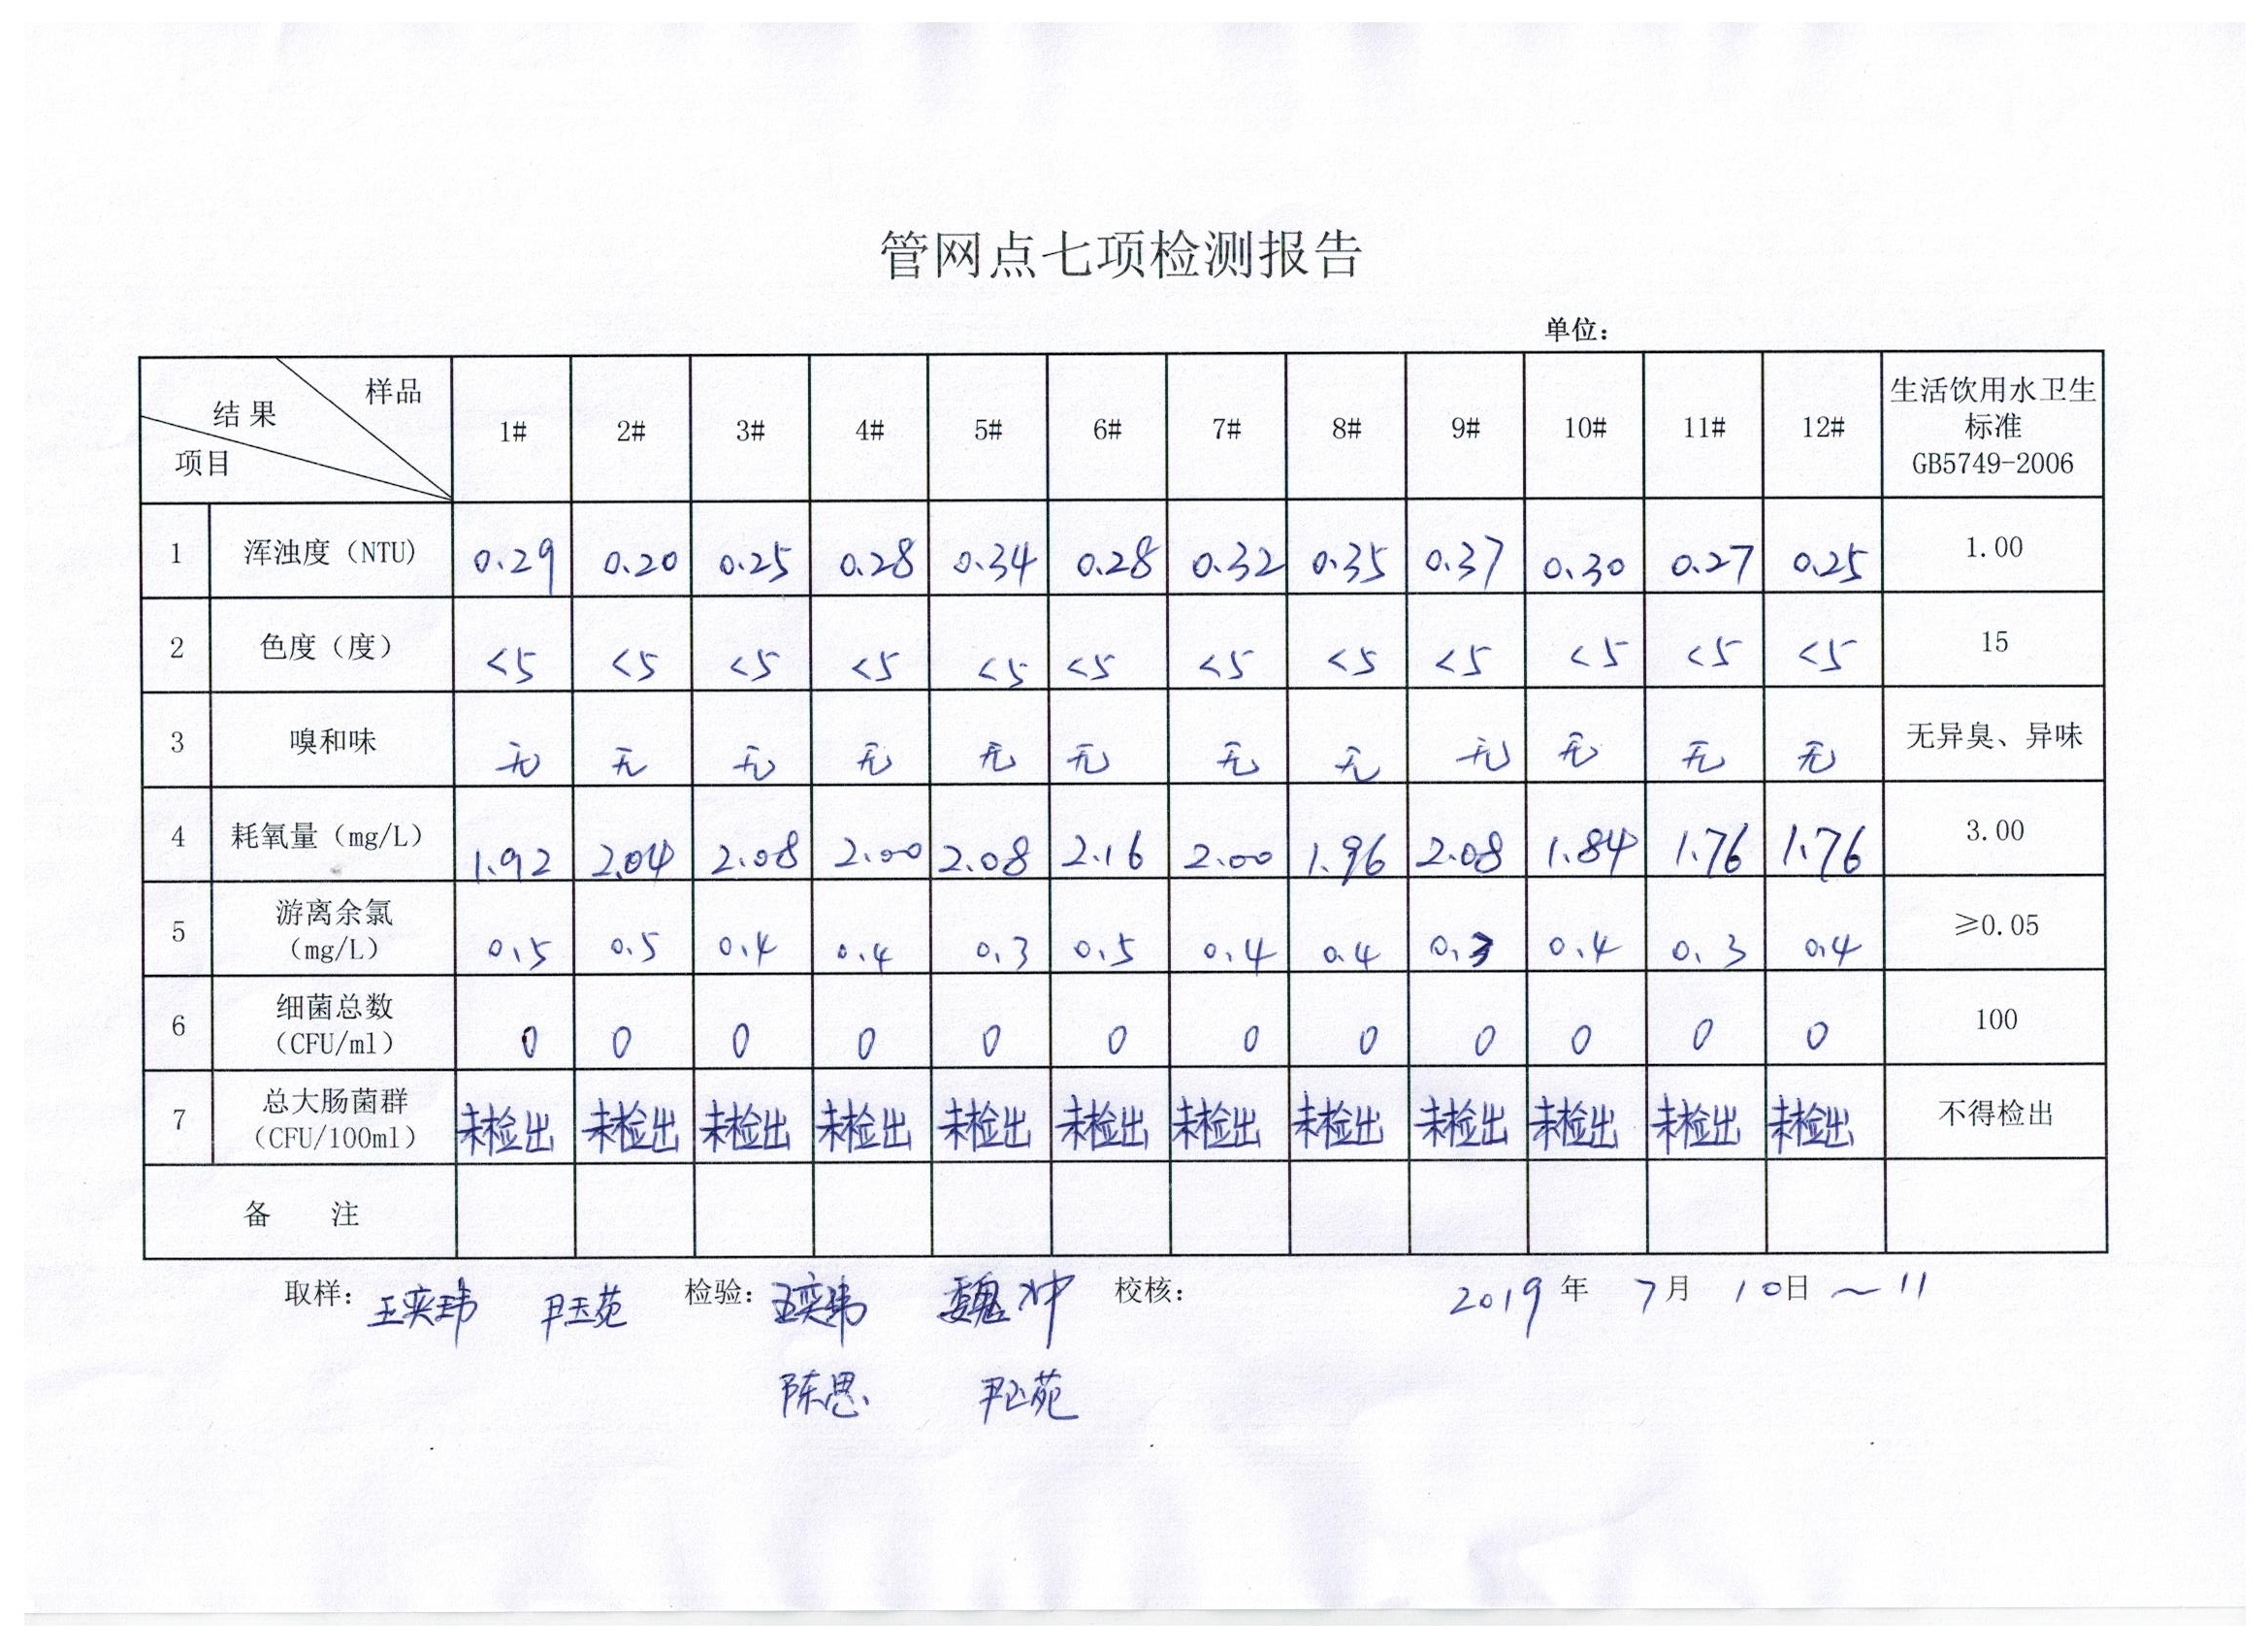 管网点七项检测报告
单位：
样品 结果 项目 1# 2# 3# 4# 5# 6# 7# 8# 9# 10# 11# 12# 生活饮用水卫生标准 GB5749-2006
1 浑浊度（NTU) 0.29 0.20 0.25 0.28 0.34 0.28 0.32 0.35 0.37 0.30 0.27 0.25 1.00
2 色度（度） <5 <5 <5 <5 <5 <5 <5 <5 <5 <5 <5 <5 15
3 嗅和味 无 无 无 无 无 无 无 无 无 无 无 无 无异臭、异味
4 耗氧量（mg/L） 1.92 2.04 2.08 2.00 2.08 2.16 2.00 1.96 2.08 1.84 1.76 1.76 3.00
5 游离余氯（mg/L） 0.5 0.5 0.4 0.4 0.3 0.5 0.4 0.4 0.3 0.4 0.3 0.4 ≥0.05
6 细菌总数（CFU/ml） 0 0 0 0 0 0 0 0 0 0 0 0 100
7 总大肠菌群（CFU/100ml） 未检出 未检出 未检出 未检出 未检出 未检出 未检出 未检出 未检出 未检出 未检出 未检出 不得检出
备 注
取样： 王奕玮 尹玉苑 检验： 王奕玮 魏冲 校核： 2019 年 7月 10日 ～11
陈思 尹玉苑